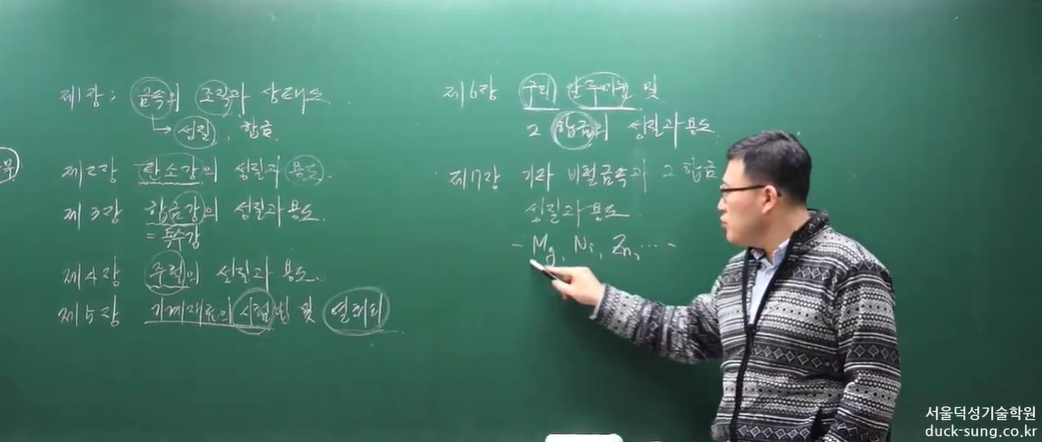 제1장 : 금속의 조직과 상태도.
→ 성질, 합금
제2장 탄소강의 성질과 용도.
제3장 합금강의 성질과 용도.
= 특수강
제4장 주철의 성질과 용도.
제5장 기계재료의 시험법 및 열처리
제6장 구리 알루미늄 및
그 합금의 성질과 용도.
제7장 기타 비철금속과 그 합금
성질과 용도.
- Mg, Ni, Zn, ···· -
서울덕성기술학원
duck-sung.co.kr